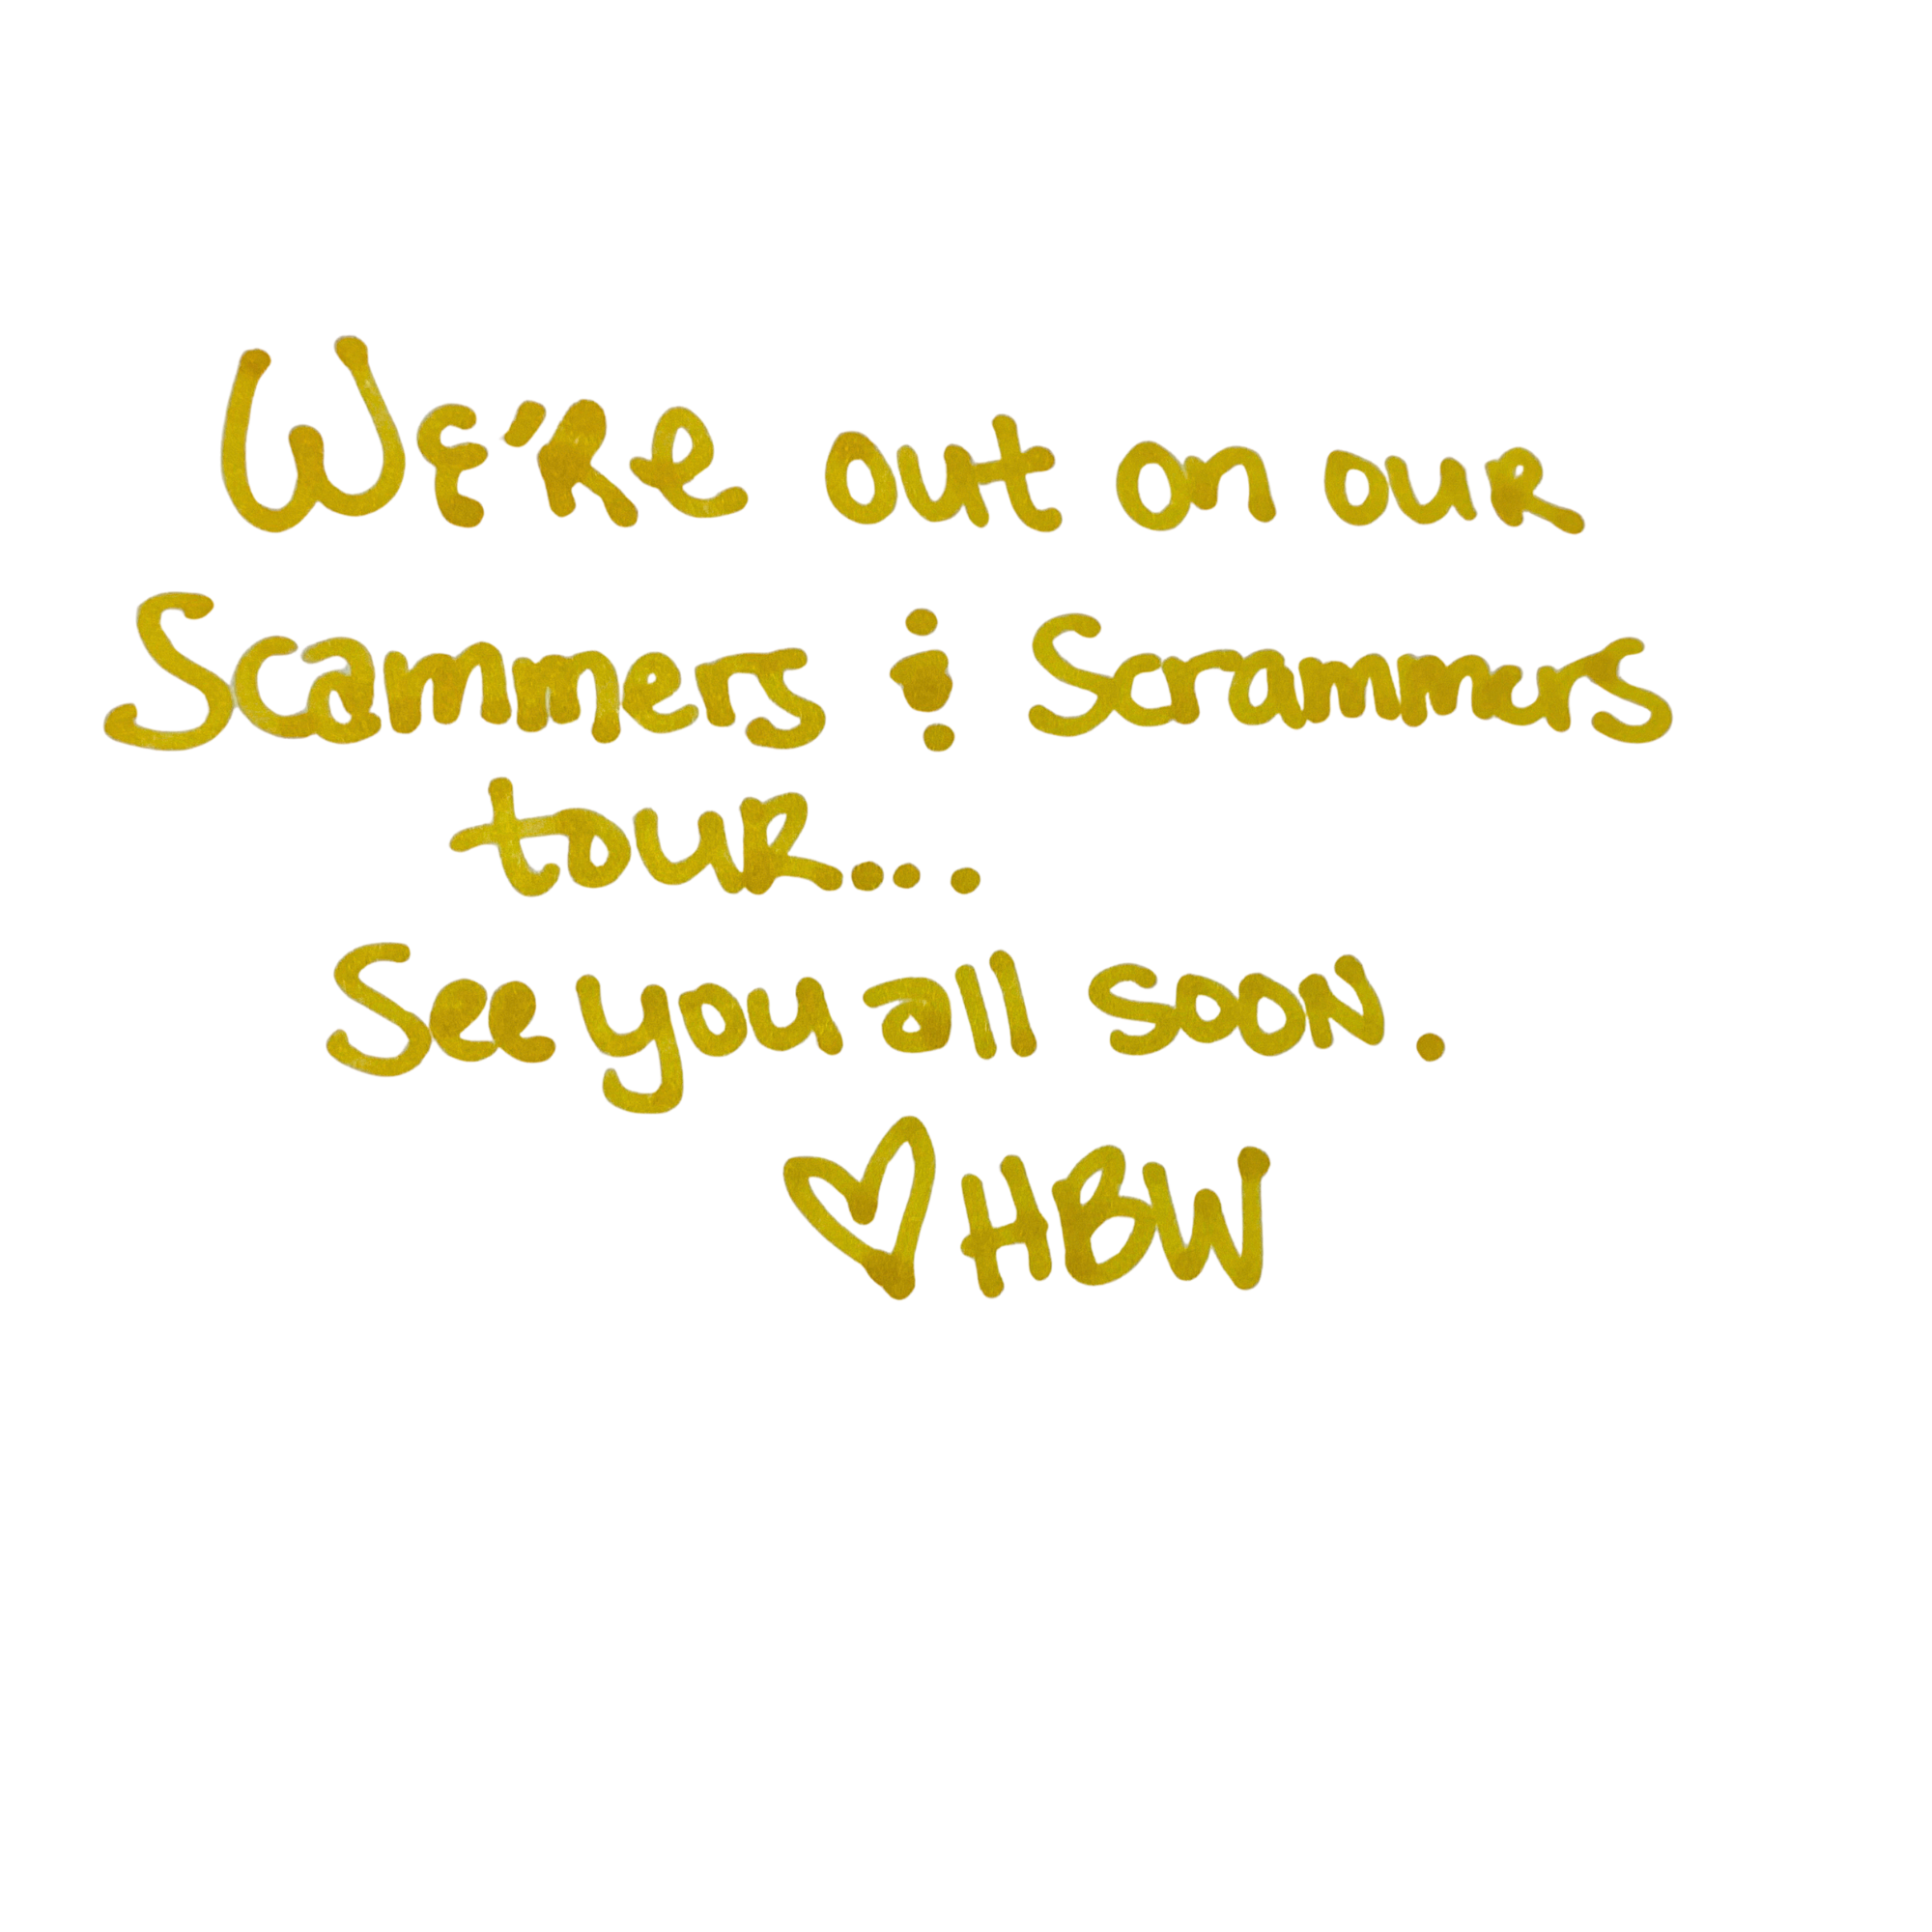 We're out on our
Scammers & Scrammers
tour....
See you all soon.
♡HBW